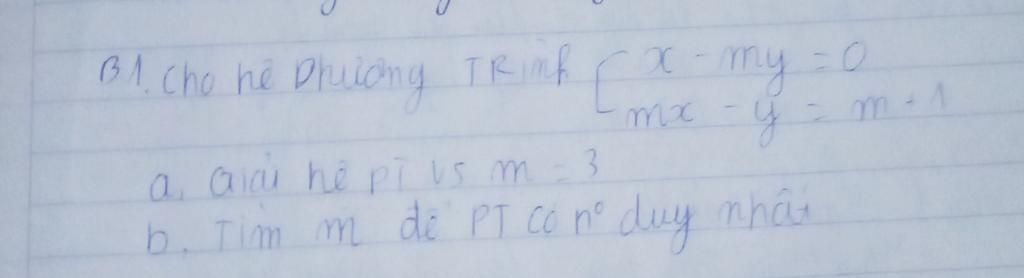 B1. Cho hê Phương TRình { x - my = 0
mx - y = m + 1
a, Giải hê PT vs m = 3
b. Tìm m để PT có nº duy nhất